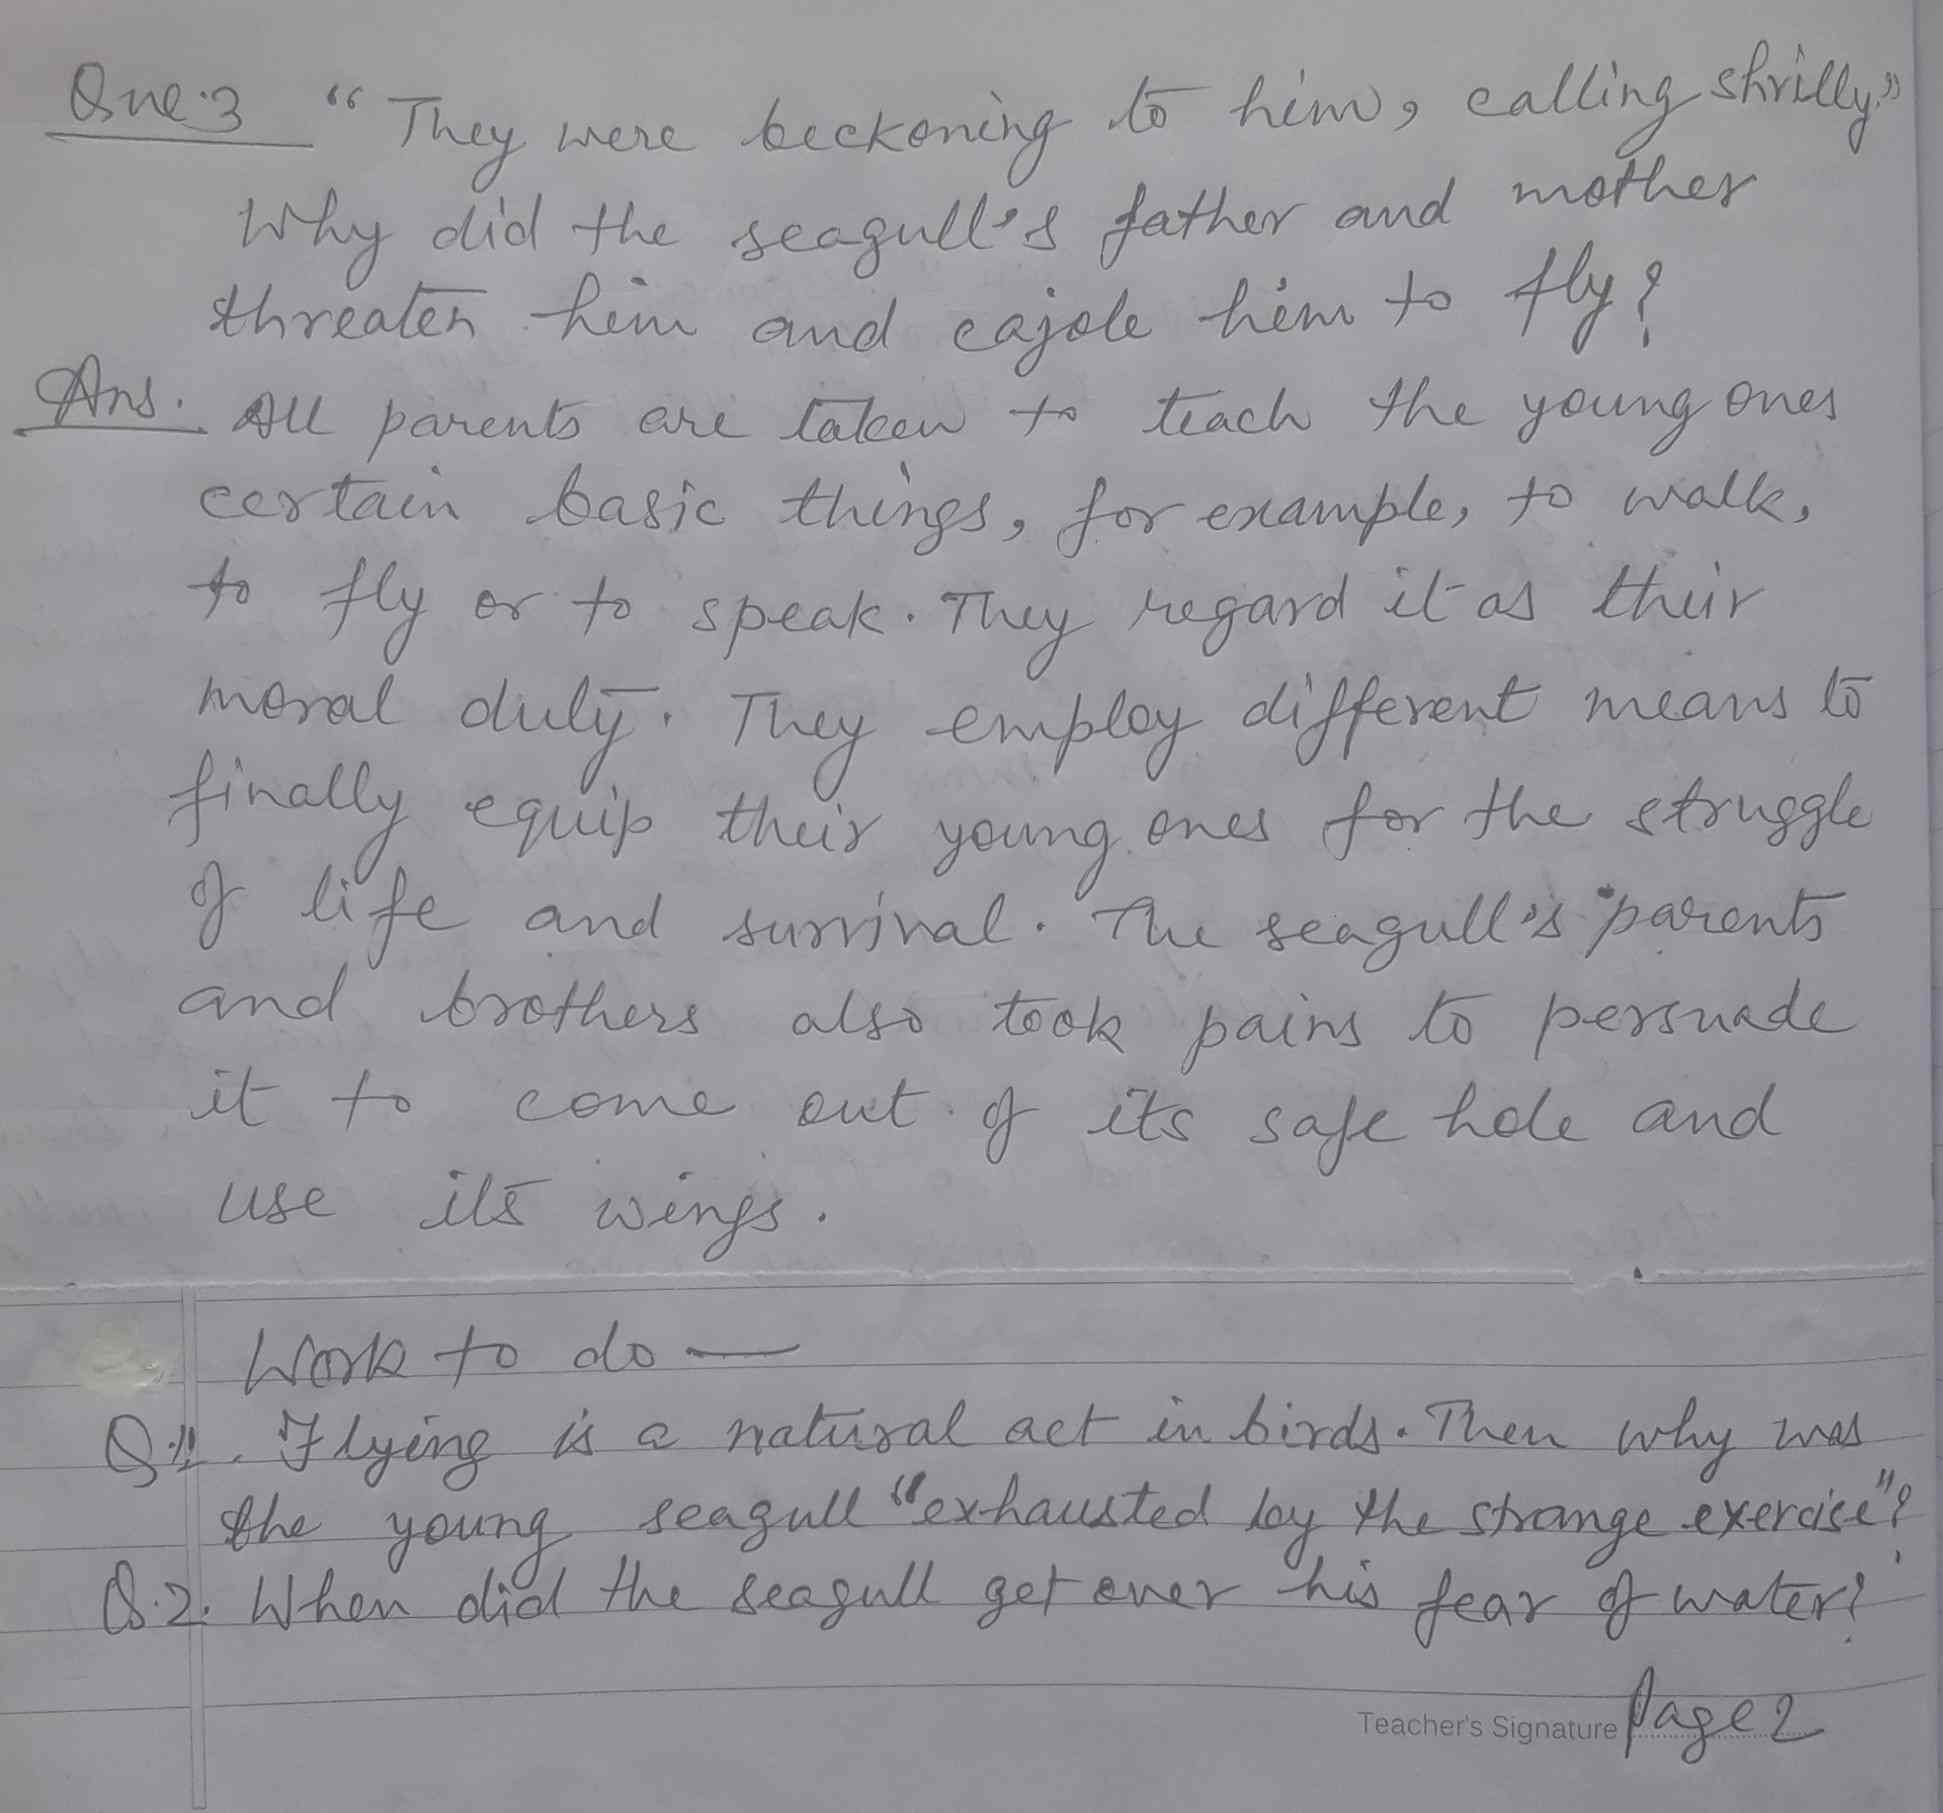 Que:3 "They were beckoning to him, calling shrilly."
Why did the seagull's father and mother
threaten him and cajole him to fly?
Ans. All parents are taken to teach the young ones
certain basic things, for example, to walk,
to fly or to speak. They regard it as their
moral duty. They employ different means to
finally equip their young ones for the struggle
of life and survival. The seagull's parents
and brothers also took pains to persuade
it to come out of its safe hole and
use its wings.
Work to do —
Q.1. Flying is a natural act in birds. Then why was
the young seagull "exhausted by the strange exercise"?
Q.2. When did the seagull get over his fear of water?
Teacher's Signature Page 2